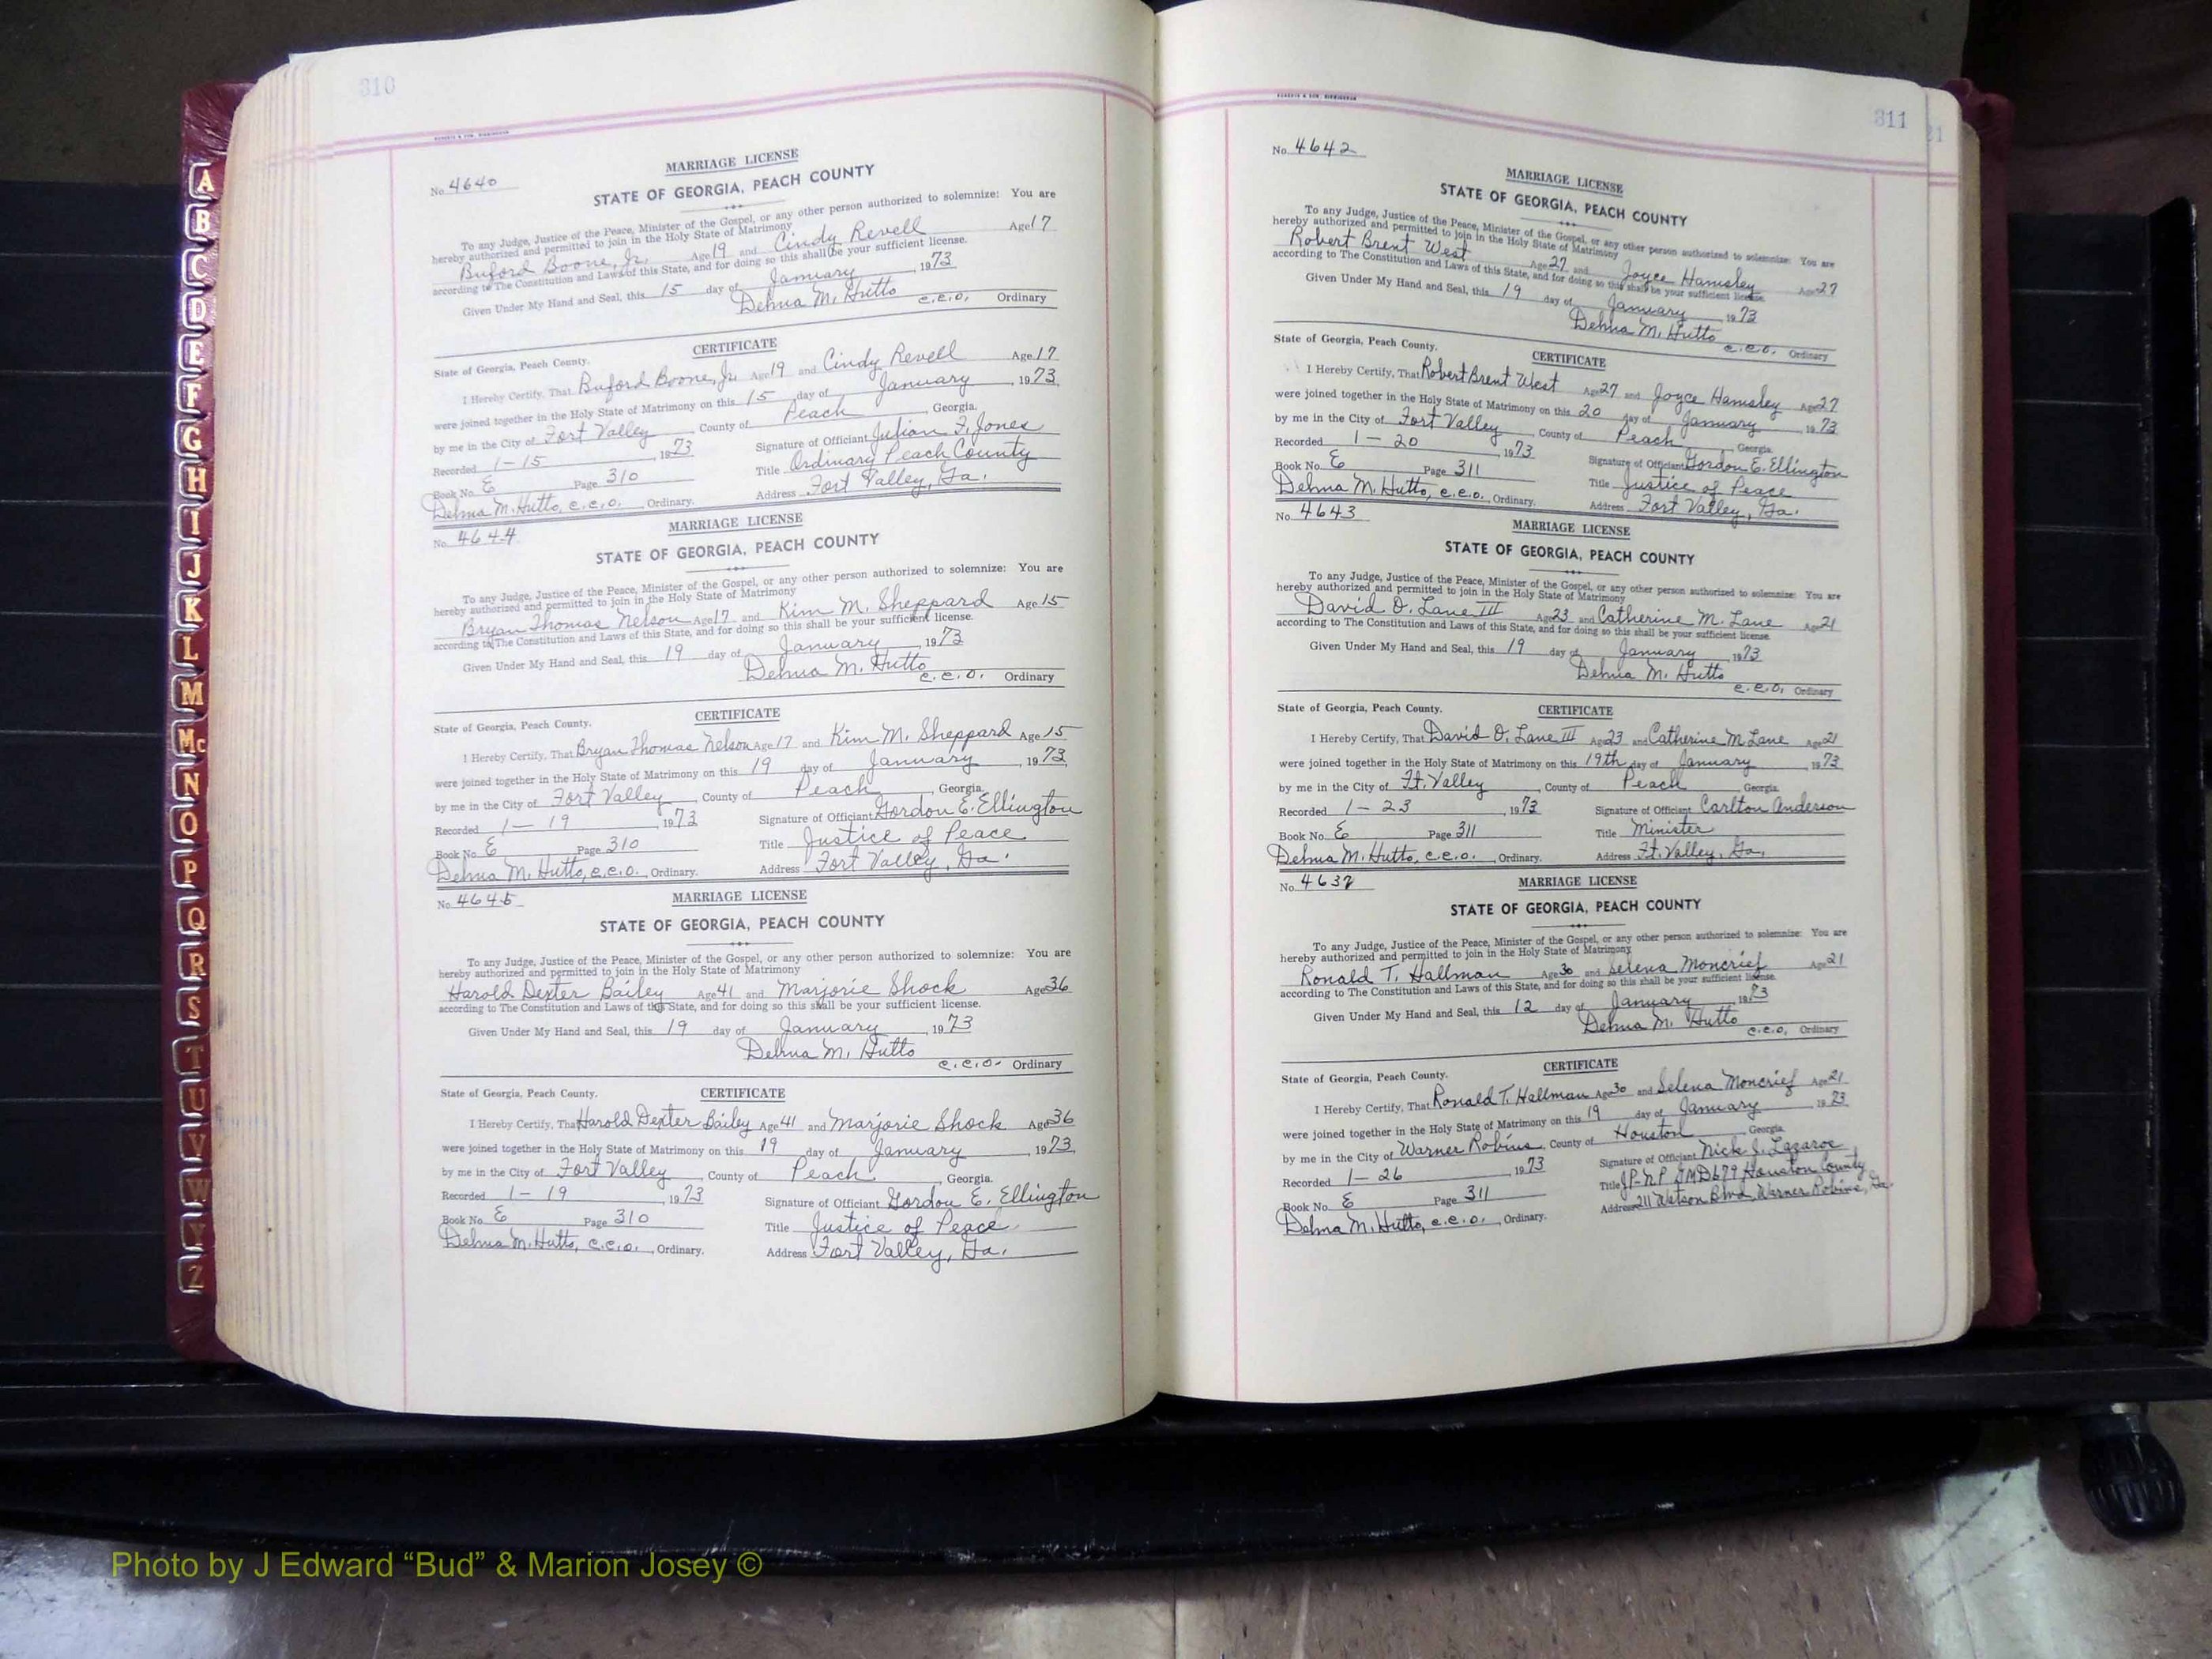 310
ROBERTS & SON, BIRMINGHAM
No. 4640
MARRIAGE LICENSE
STATE OF GEORGIA, PEACH COUNTY
To any Judge, Justice of the Peace, Minister of the Gospel, or any other person authorized to solemnize: You are
hereby authorized and permitted to join in the Holy State of Matrimony
Buford Boone, Jr. Age 19 and Cindy Revell Age 17
according to The Constitution and Laws of this State, and for doing so this shall be your sufficient license.
Given Under My Hand and Seal, this 15 day of January, 1973
Delma M. Hutto
C.C.O. Ordinary
CERTIFICATE
State of Georgia, Peach County.
I Hereby Certify, That Buford Boone, Jr. Age 19 and Cindy Revell Age 17
were joined together in the Holy State of Matrimony on this 15 day of January, 1973.
by me in the City of Fort Valley, County of Peach, Georgia.
Recorded 1-15, 1973
Signature of Official Julian F. Jones
Book No. E Page 310
Title Ordinary Peach County
Delma M. Hutto, C.C.O., Ordinary.
Address Fort Valley, Ga.
No. 4644
MARRIAGE LICENSE
STATE OF GEORGIA, PEACH COUNTY
To any Judge, Justice of the Peace, Minister of the Gospel, or any other person authorized to solemnize: You are
hereby authorized and permitted to join in the Holy State of Matrimony
Bryan Thomas Nelson Age 17 and Kim M. Sheppard Age 15
according to The Constitution and Laws of this State, and for doing so this shall be your sufficient license.
Given Under My Hand and Seal, this 19 day of January, 1973
Delma M. Hutto
C.C.O. Ordinary
CERTIFICATE
State of Georgia, Peach County.
I Hereby Certify, That Bryan Thomas Nelson Age 17 and Kim M. Sheppard Age 15
were joined together in the Holy State of Matrimony on this 19 day of January, 1973,
by me in the City of Fort Valley, County of Peach, Georgia.
Recorded 1-19, 1973
Signature of Official Gordon E. Ellington
Book No. E Page 310
Title Justice of Peace
Delma M. Hutto, C.C.O., Ordinary.
Address Fort Valley, Ga.
No. 4645
MARRIAGE LICENSE
STATE OF GEORGIA, PEACH COUNTY
To any Judge, Justice of the Peace, Minister of the Gospel, or any other person authorized to solemnize: You are
hereby authorized and permitted to join in the Holy State of Matrimony
Harold Dexter Bailey Age 41 and Marjorie Shock Age 36
according to The Constitution and Laws of this State, and for doing so this shall be your sufficient license.
Given Under My Hand and Seal, this 19 day of January, 1973
Delma M. Hutto
C.C.O. Ordinary
State of Georgia, Peach County. CERTIFICATE
I Hereby Certify, That Harold Dexter Bailey Age 41 and Marjorie Shock Age 36
were joined together in the Holy State of Matrimony on this 19 day of January, 1973,
by me in the City of Fort Valley, County of Peach, Georgia.
Recorded 1-19, 1973
Signature of Official Gordon E. Ellington
Book No. E Page 310
Title Justice of Peace
Delma M. Hutto, C.C.O., Ordinary.
Address Fort Valley, Ga.
311
ROBERTS & SON, BIRMINGHAM
No. 4642
MARRIAGE LICENSE
STATE OF GEORGIA, PEACH COUNTY
To any Judge, Justice of the Peace, Minister of the Gospel, or any other person authorized to solemnize: You are
hereby authorized and permitted to join in the Holy State of Matrimony
Robert Brent West Age 27 and Joyce Hamsley Age 27
according to The Constitution and Laws of this State, and for doing so this shall be your sufficient license.
Given Under My Hand and Seal, this 19 day of January, 1973
Delma M. Hutto
C.C.O. Ordinary
State of Georgia, Peach County.
CERTIFICATE
I Hereby Certify, That Robert Brent West Age 27 and Joyce Hamsley Age 27
were joined together in the Holy State of Matrimony on this 20 day of January, 1973,
by me in the City of Fort Valley, County of Peach, Georgia.
Recorded 1-20, 1973
Signature of Official Gordon E. Ellington
Book No. E Page 311
Title Justice of Peace
Delma M. Hutto, C.C.O., Ordinary.
Address Fort Valley, Ga.
No. 4643
MARRIAGE LICENSE
STATE OF GEORGIA, PEACH COUNTY
To any Judge, Justice of the Peace, Minister of the Gospel, or any other person authorized to solemnize: You are
hereby authorized and permitted to join in the Holy State of Matrimony
David O. Lane III Age 23 and Catherine M. Lane Age 21
according to The Constitution and Laws of this State, and for doing so this shall be your sufficient license.
Given Under My Hand and Seal, this 19 day of January, 1973
Delma M. Hutto
C.C.O. Ordinary
State of Georgia, Peach County. CERTIFICATE
I Hereby Certify, That David O. Lane III Age 23 and Catherine M Lane Age 21
were joined together in the Holy State of Matrimony on this 19th day of January, 1973
by me in the City of Ft. Valley, County of Peach, Georgia.
Recorded 1-23, 1973
Signature of Official Carlton Anderson
Book No. E Page 311
Title Minister
Delma M. Hutto, C.C.O., Ordinary.
Address Ft. Valley, Ga.
No. 4637
MARRIAGE LICENSE
STATE OF GEORGIA, PEACH COUNTY
To any Judge, Justice of the Peace, Minister of the Gospel, or any other person authorized to solemnize: You are
hereby authorized and permitted to join in the Holy State of Matrimony
Ronald T. Hallman Age 30 and Selena Moncrief Age 21
according to The Constitution and Laws of this State, and for doing so this shall be your sufficient license.
Given Under My Hand and Seal, this 12 day of January, 1973
Delma M. Hutto
C.C.O. Ordinary
State of Georgia, Peach County. CERTIFICATE
I Hereby Certify, That Ronald T. Hallman Age 30 and Selena Moncrief Age 21
were joined together in the Holy State of Matrimony on this 19 day of January, 1973
by me in the City of Warner Robins, County of Houston, Georgia
Recorded 1-26, 1973
Signature of Official Nick J. Lazaroe
Book No. E Page 311
Title JP-NP GMD 679 Houston County
Delma M. Hutto, C.C.O., Ordinary.
Address 211 Watson Blvd, Warner Robins, Ga.
A
B
C
D
E
F
G
H
I
J
K
L
M
Mc
N
O
P
Q
R
S
T
U
V
W
Y
Z
Photo by J Edward “Bud” & Marion Josey ©